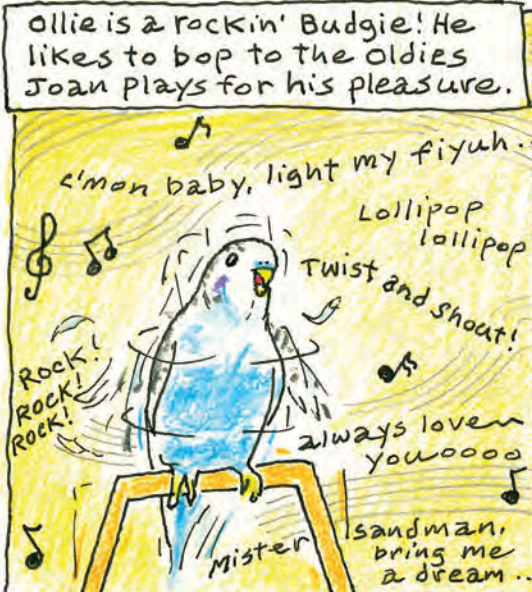 Ollie is a rockin' Budgie! He
likes to bop to the Oldies
Joan plays for his pleasure.
c'mon baby, light my fiyuh..
Lollipop
lollipop
Twist and shout!
Rock!
Rock!
Rock!
always loven
youoooo
Mister
sandman,
bring me
a dream..